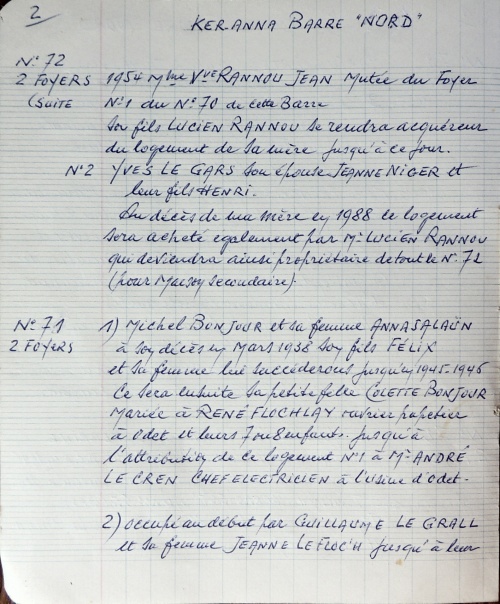 2
KER.ANNA BARRE "NORD"
N° 72
2 FOYERS 1954 Mme Vve RANNOU JEAN Mutée du Foyer
(Suite N°1 du N° 70 de cette Barre
Son fils LUCIEN RANNOU se rendra acquéreur
du logement de sa mère jusqu'à ce jour.
N°2 YVES LE GARS son épouse JEANNE NIGER et
leur fils HENRI.
Au décès de ma mère en 1988 le logement
sera acheté également par Mr LUCIEN RANNOU
qui deviendra ainsi propriétaire de tout le N° 72
(pour Maison secondaire).
N° 71 1) Michel BONJOUR et sa femme ANNA SALAÜN
2 FOYERS à son décès en Mars 1938 son fils FÉLIX
et sa femme lui succéderons jusqu'en 1945-1946
Ce sera ensuite sa petite fille COLETTE BONJOUR
Mariée à RENÉ FLOCHLAY ouvrier papetier
à Odet et leurs 7 ou 8 enfants. jusqu'à
l'attribution de ce logement N°1 à Mr ANDRÉ
LE CREN CHEF ELECTRICIEN à l'usine d'Odet.
2) occupé au début par GUILLAUME LE GRALL
et sa femme JEANNE LE FLOC'H jusqu'à leur